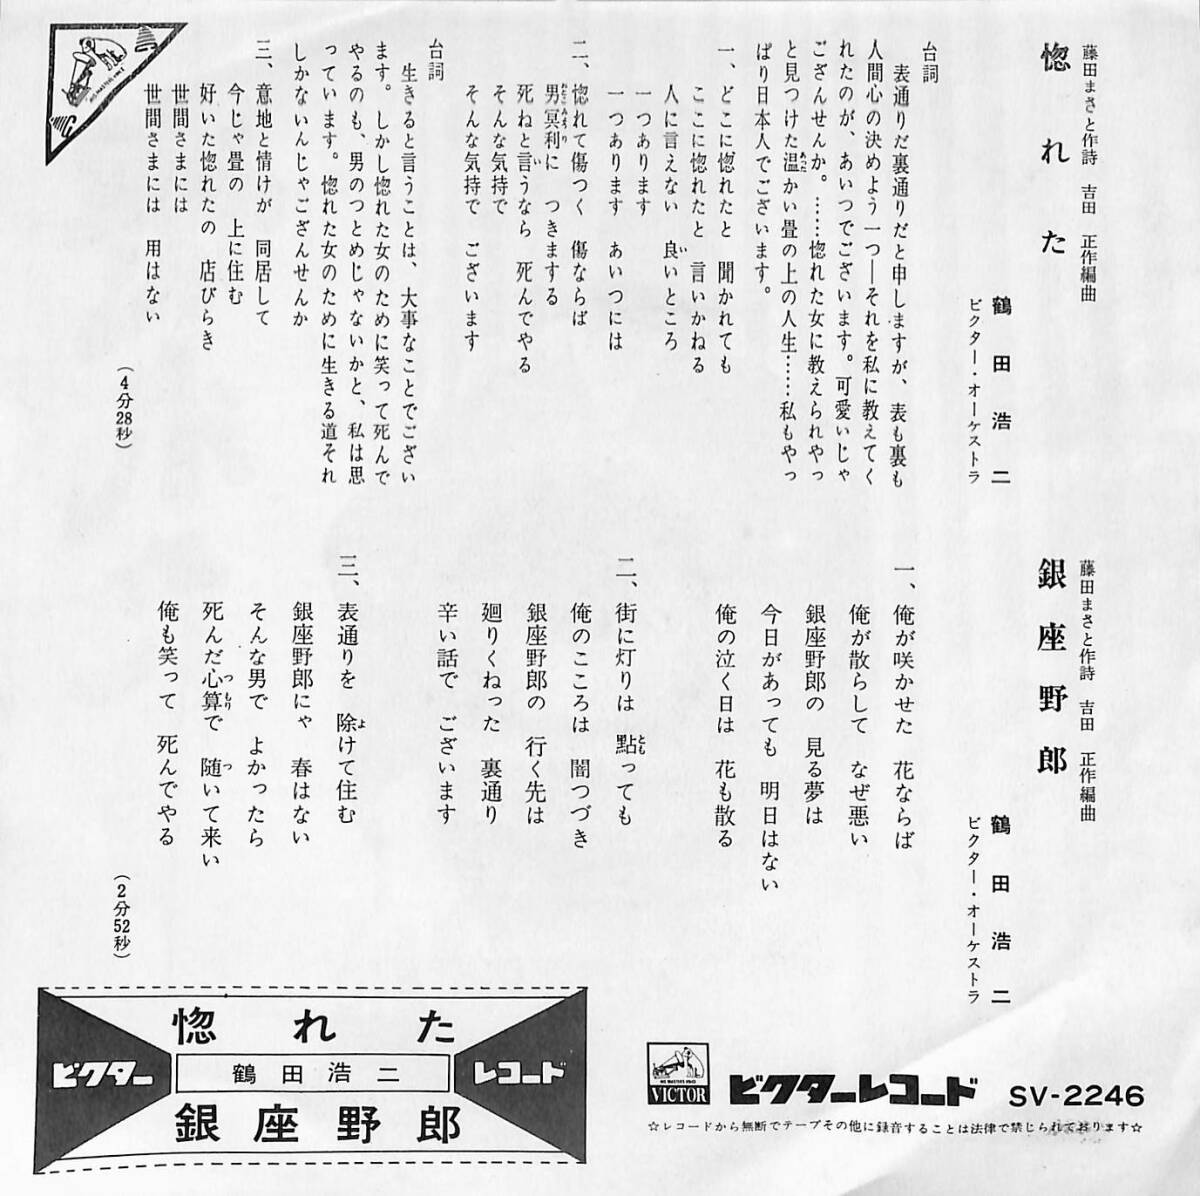 惚れた
藤田まさと作詩 吉田 正作編曲
鶴田浩二
ビクター・オーケストラ
台詞
表通りだ裏通りだと申しますが、表も裏も
人間心の決めよう一つ―それを私に教えてく
れたのが、あいつでございます。可愛いじゃ
ござんせんか。……惚れた女に教えられやっ
と見つけた温かい畳の上の人生……私もやっ
ぱり日本人でございます。
一、どこに惚れたと 聞かれても
ここに惚れたと 言いかねる
人に言えない 良いところ
一つあります
一つあります あいつには
二、惚れて傷つく 傷ならば
男冥利に つきまする
死ねと言うなら 死んでやる
そんな気持で
そんな気持で ございます
台詞
生きると言うことは、大事なことでござい
ます。しかし惚れた女のために笑って死んで
やるのも、男のつとめじゃないかと、私は思
っています。惚れた女のために生きる道それ
しかないんじゃござんせんか
三、意地と情けが 同居して
今じゃ畳の 上に住む
好いた惚れたの 店びらき
世間さまには
世間さまには 用はない
(4分28秒)
銀座野郎
藤田まさと作詩 吉田 正作編曲
鶴田浩二
ビクター・オーケストラ
一、俺が咲かせた 花ならば
俺が散らして なぜ悪い
銀座野郎の 見る夢は
今日があっても 明日はない
俺の泣く日は 花も散る
二、街に灯りは 點っても
俺のこころは 闇つづき
銀座野郎の 行く先は
廻りくねった 裏通り
辛い話で ございます
三、表通りを 除けて住む
銀座野郎にゃ 春はない
そんな男で よかったら
死んだ心算で 随いて来い
俺も笑って 死んでやる
(2分52秒)
惚れた
ビクター 鶴田浩二 レコード
銀座野郎
HIS MASTER'S VOICE
VICTOR
ビクターレコード SV-2246
☆レコードから無断でテープその他に録音することは法律で禁じられて居ります☆